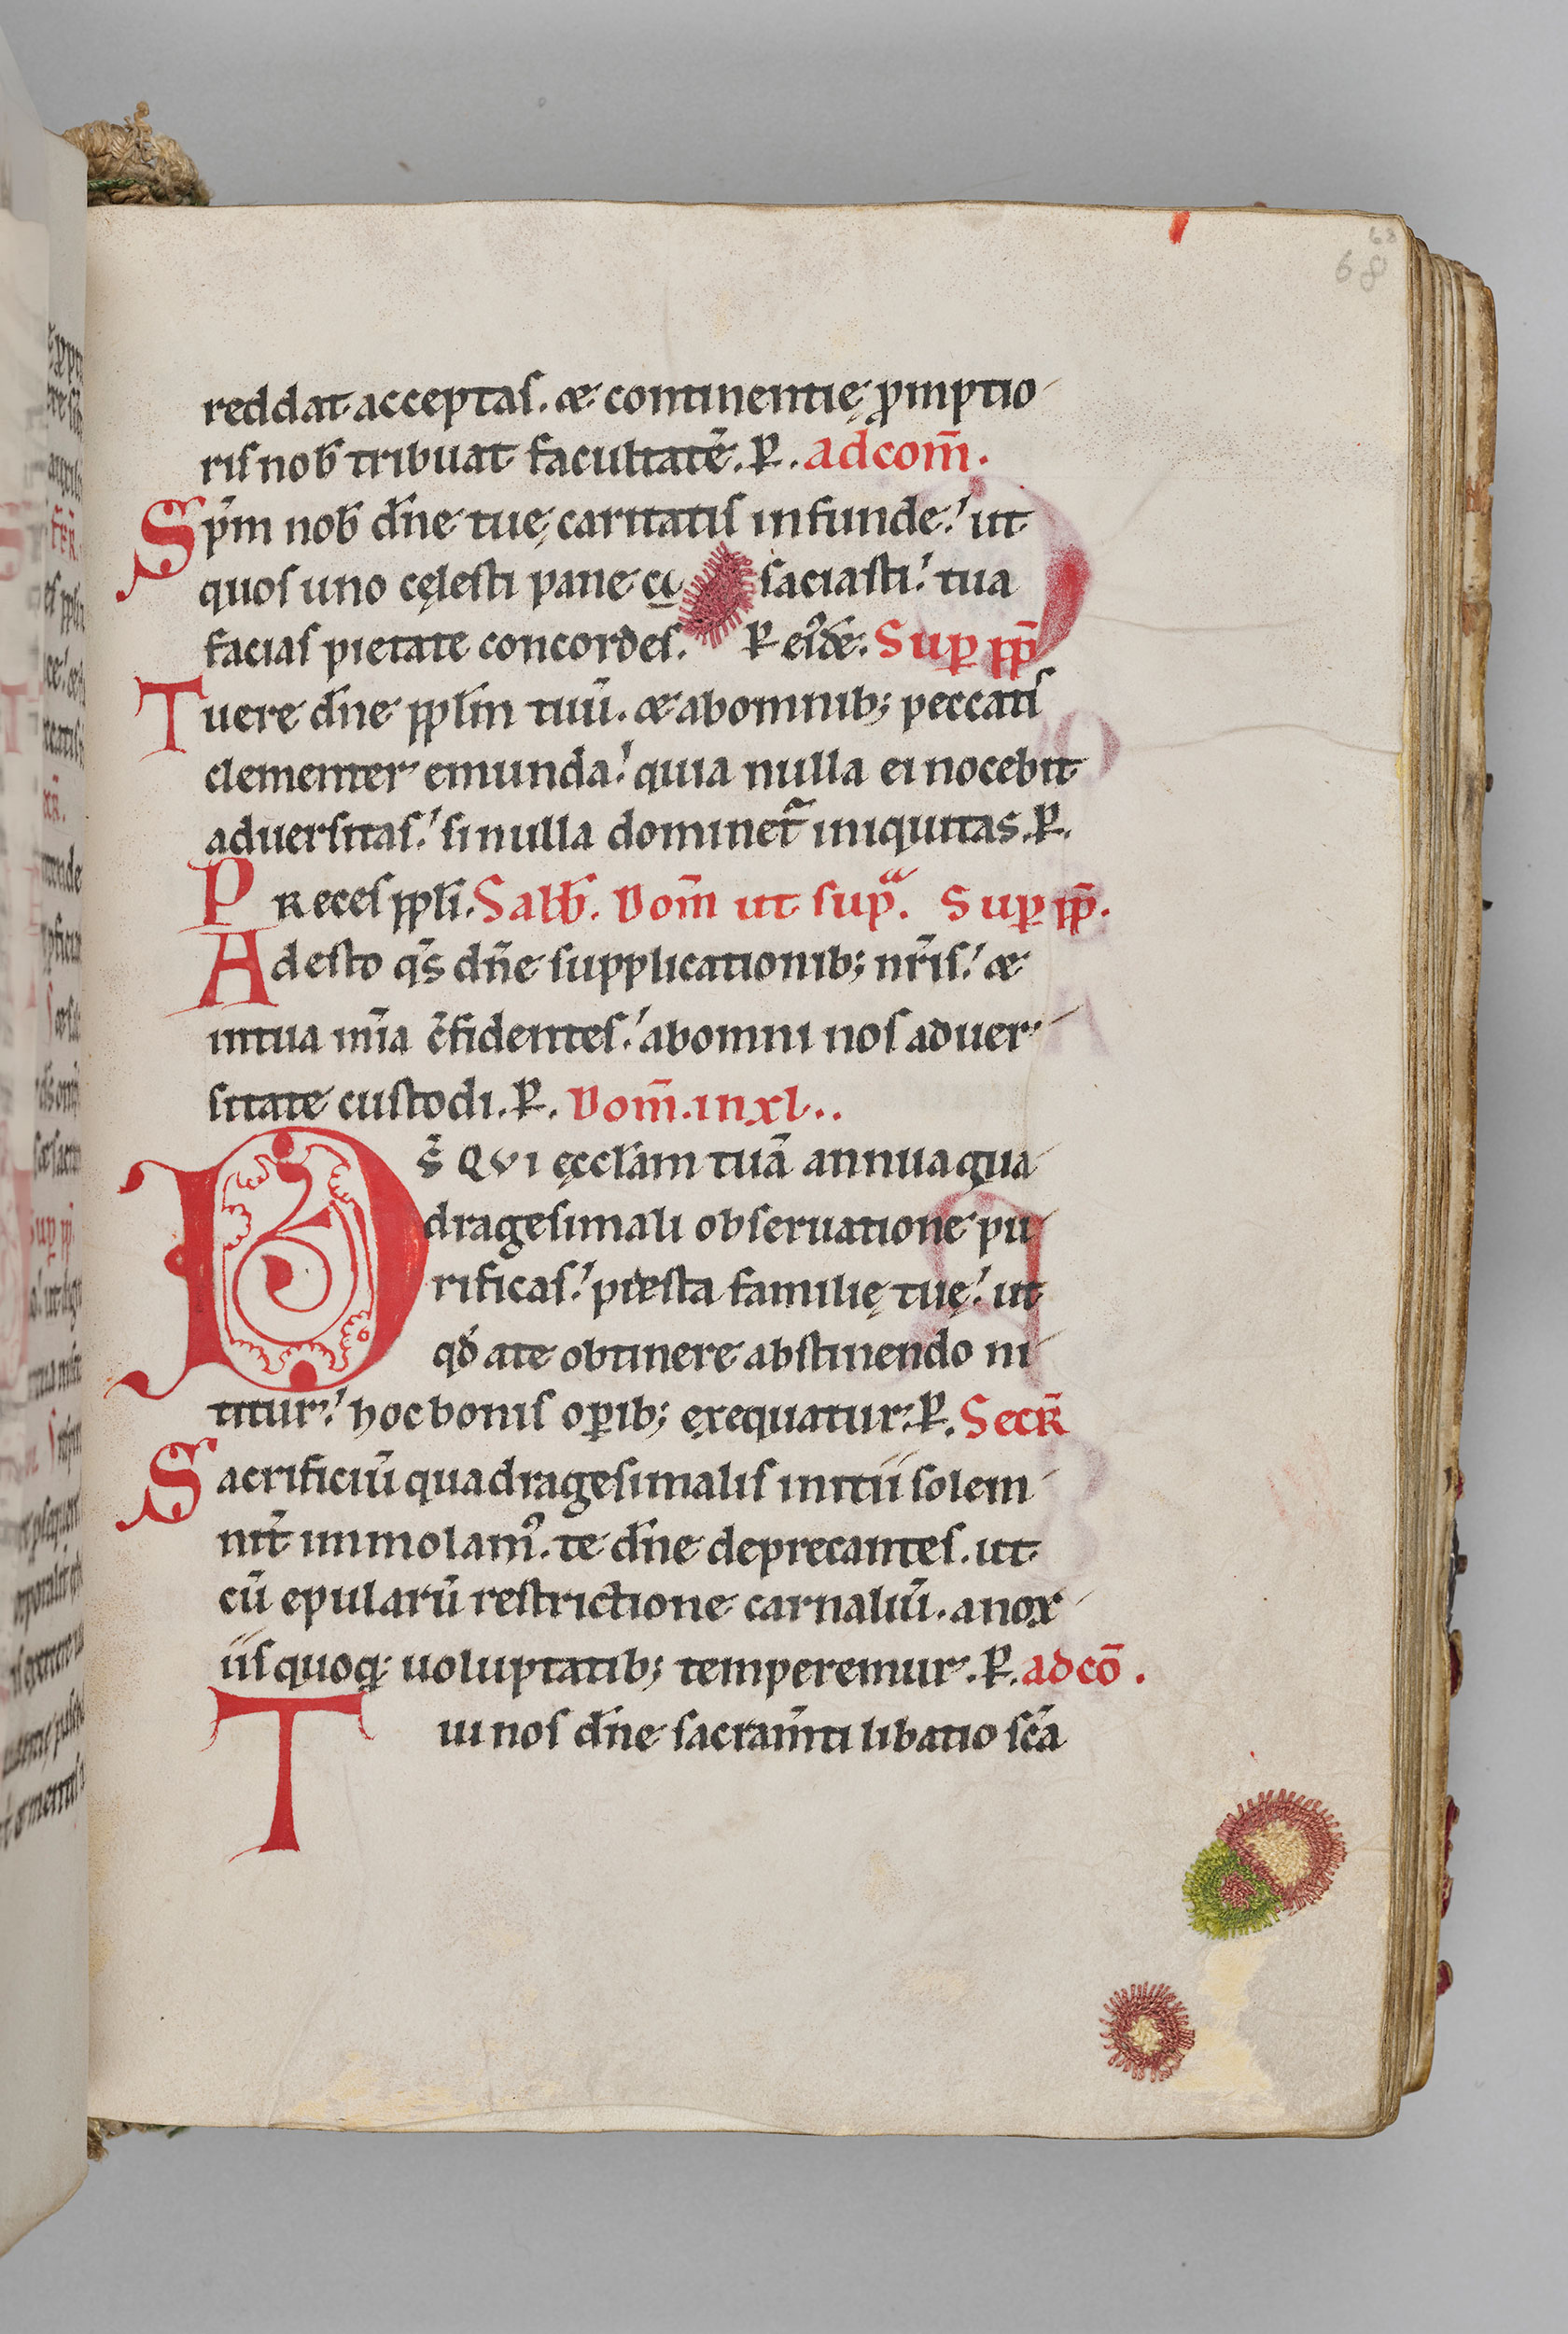 68
68
reddat acceptas. & continentię p̄mptio
ris nob̄ tribuat facultatē. P. ad com̄.
Sp̄m nob̄ dn̄e tuę caritatis infunde! ut
quos uno cęlesti pane saciasti! tua
facias pietate concordes. P eiusdē. Sup pp̄
Tuere dn̄e ppl̄m tuū. & ab omnib; peccatis
clementer emunda! quia nulla ei nocebit
aduersitas! si nulla dominet̄ iniquitas. P.
Preces ppl̄i. Sabb̄. Dom̄ ut sup̄ᵃ. Sup pp̄.
Adesto qs̄ dn̄e supplicationib; nr̄is! &
in tua mīa c̄fidentes! ab omni nos aduer
sitate custodi. P. Dom̄. in xl..
Ds̄ QVI ęccl̄am tuā annua qua
dragesimali obseruatione pu
rificas! pręsta familię tuę! ut
qd̄ a te obtinere abstinendo ni
titur! hoc bonis opib; exequatur. P. Secr̄
Sacrificiū quadragesimalis initii solem
nit̄ immolam᾿. te dn̄e deprecantes. ut
cū epularū restrictione carnaliū. a nox
iis quoq; uoluptatib; temperemur. P. ad cō.
Tui nos dn̄e sacram̄ti libatio sc̄a